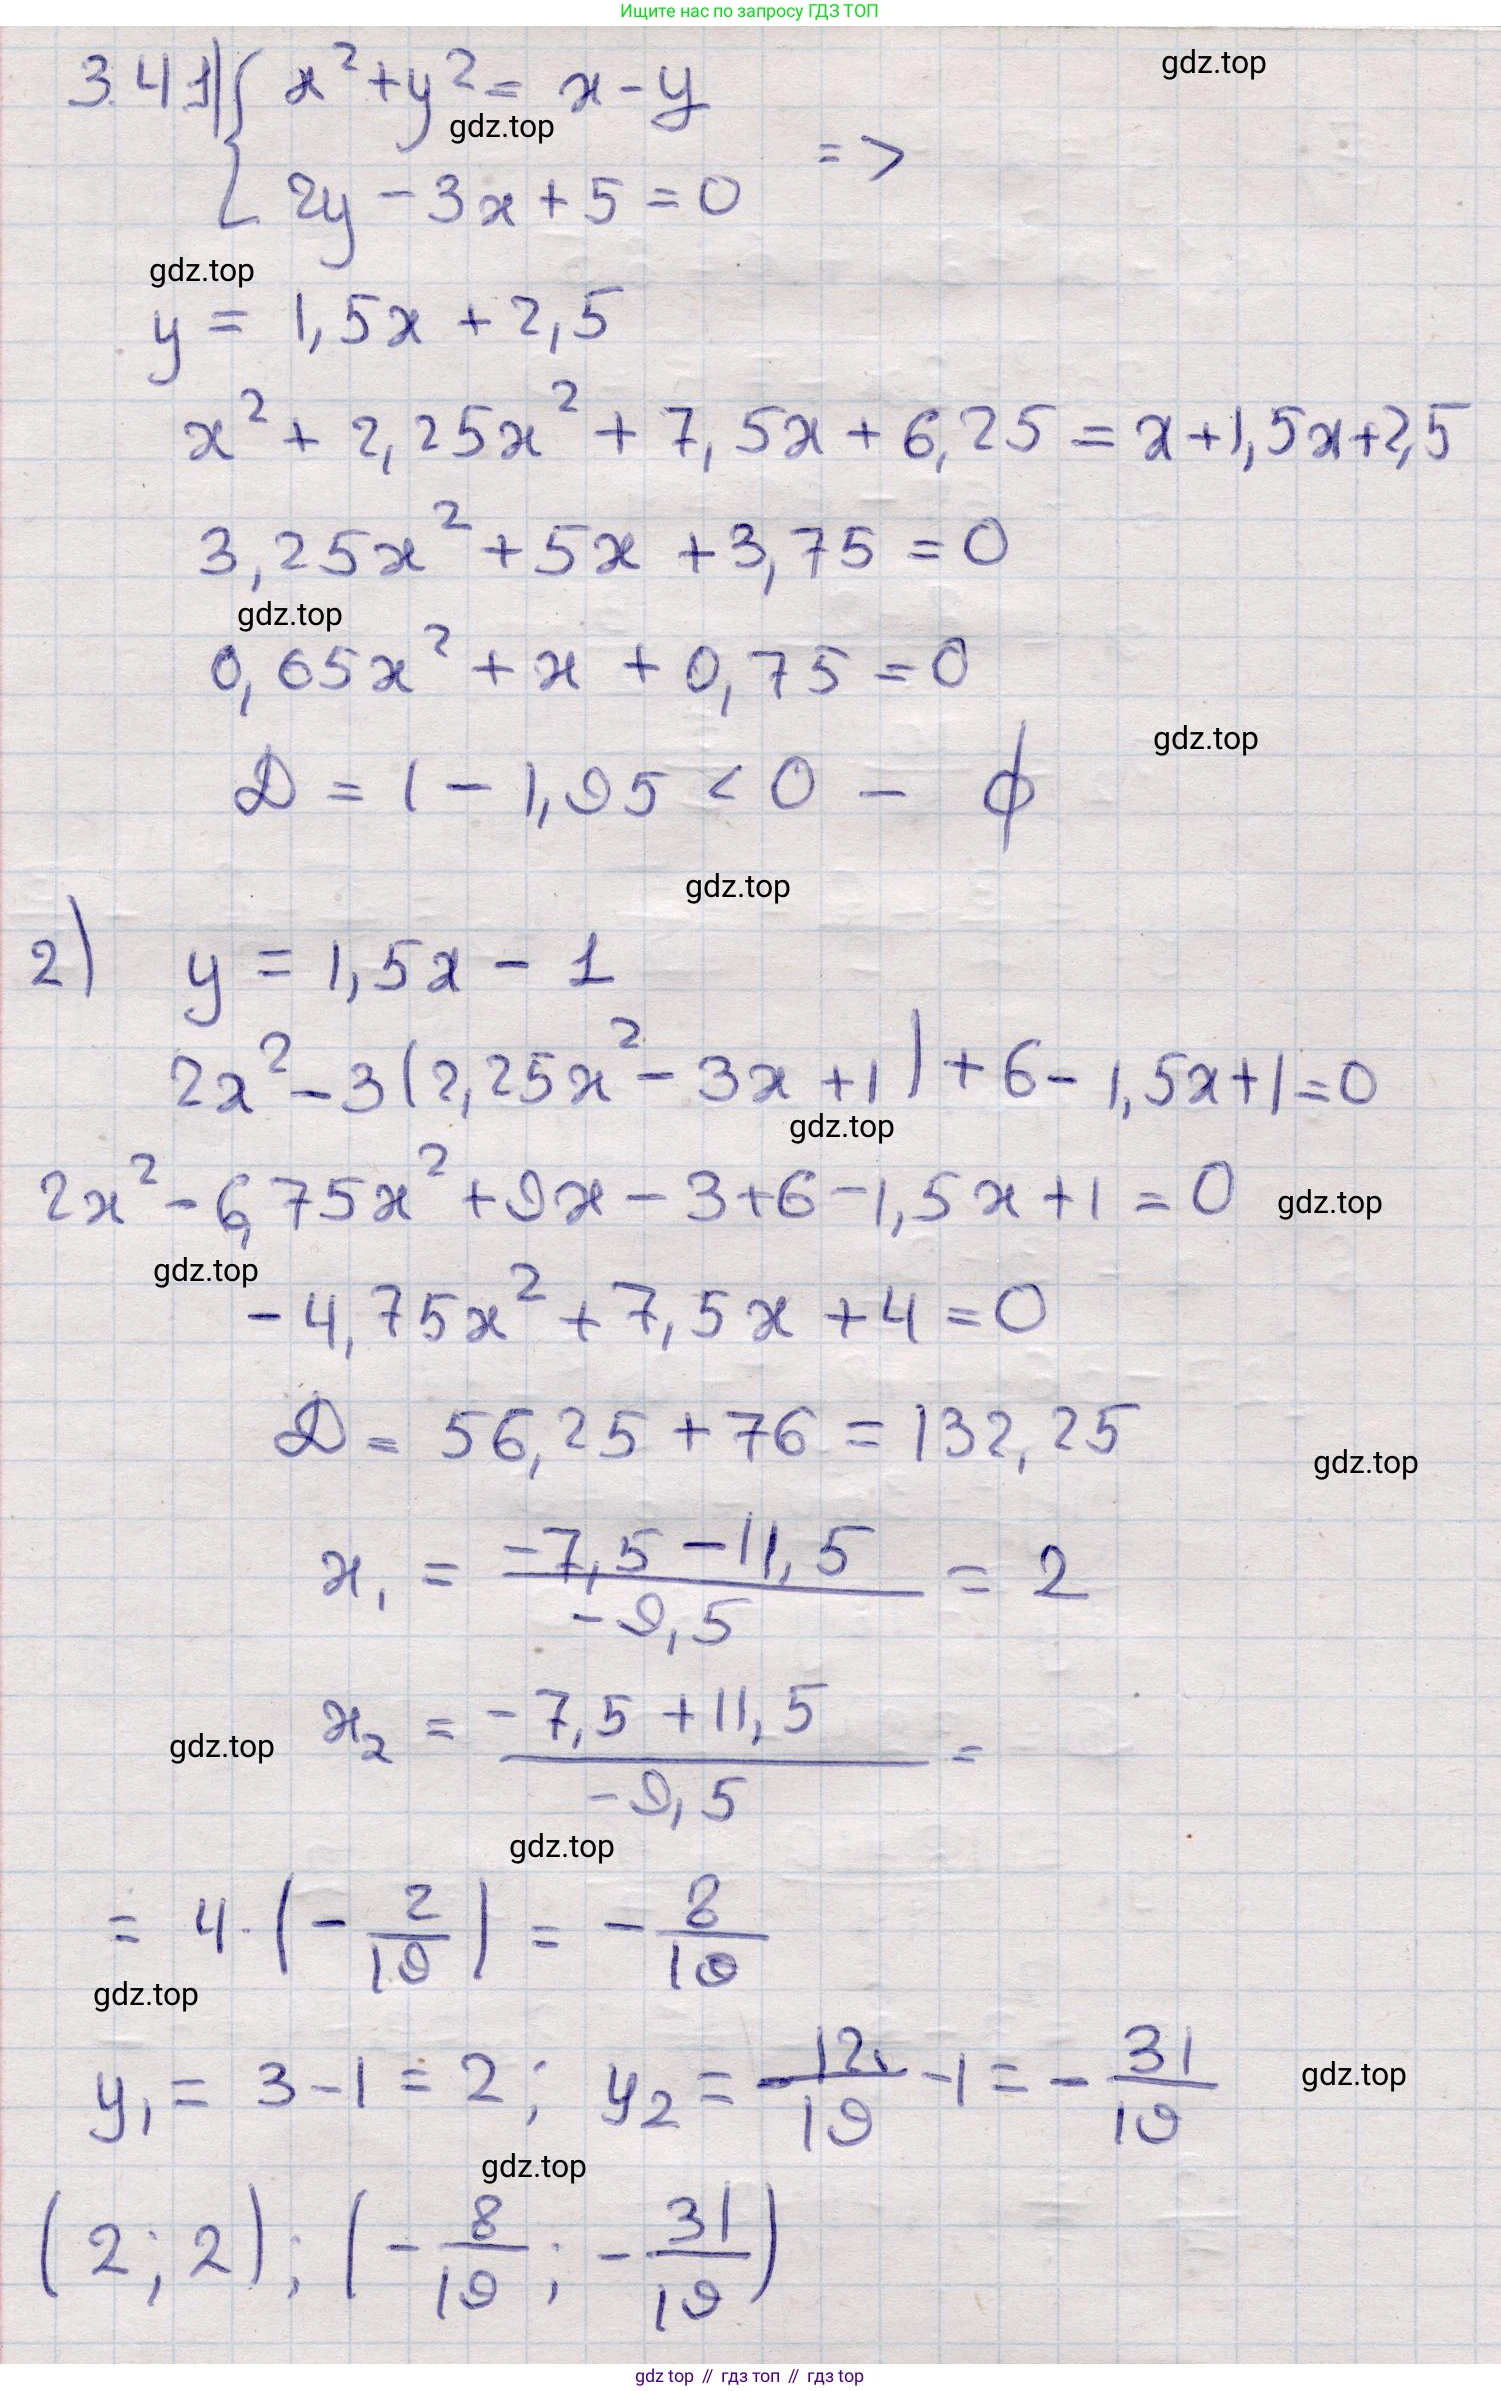 Ищите нас по запросу ГДЗ ТОП
3.4.1) { x² + y² = x - y
gdz.top
gdz.top
2y - 3x + 5 = 0 =>
gdz.top
y = 1,5x + 2,5
x² + 2,25x² + 7,5x + 6,25 = x + 1,5x + 2,5
3,25x² + 5x + 3,75 = 0
gdz.top
0,65x² + x + 0,75 = 0
gdz.top
D = 1 - 1,95 < 0 - ∅
gdz.top
2) y = 1,5x - 1
2x² - 3(2,25x² - 3x + 1) + 6 - 1,5x + 1 = 0
gdz.top
2x² - 6,75x² + 9x - 3 + 6 - 1,5x + 1 = 0
gdz.top
gdz.top
-4,75x² + 7,5x + 4 = 0
D = 56,25 + 76 = 132,25
gdz.top
x₁ = (-7,5 - 11,5)/(-9,5) = 2
x₂ = (-7,5 + 11,5)/(-9,5) =
gdz.top
gdz.top
= 4 · (-2/19) = -8/19
gdz.top
y₁ = 3 - 1 = 2; y₂ = -12/19 - 1 = -31/19
gdz.top
gdz.top
(2; 2); (-8/19; -31/19)
gdz top // гдз топ // гдз top